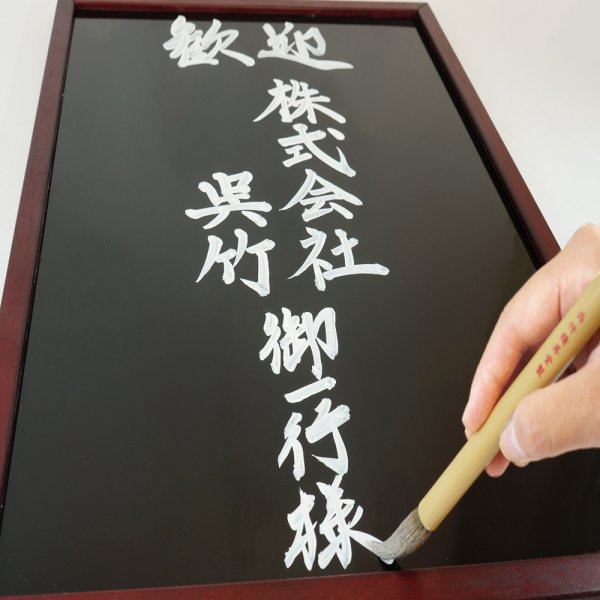 歓迎
株式会社
呉竹
御一行様